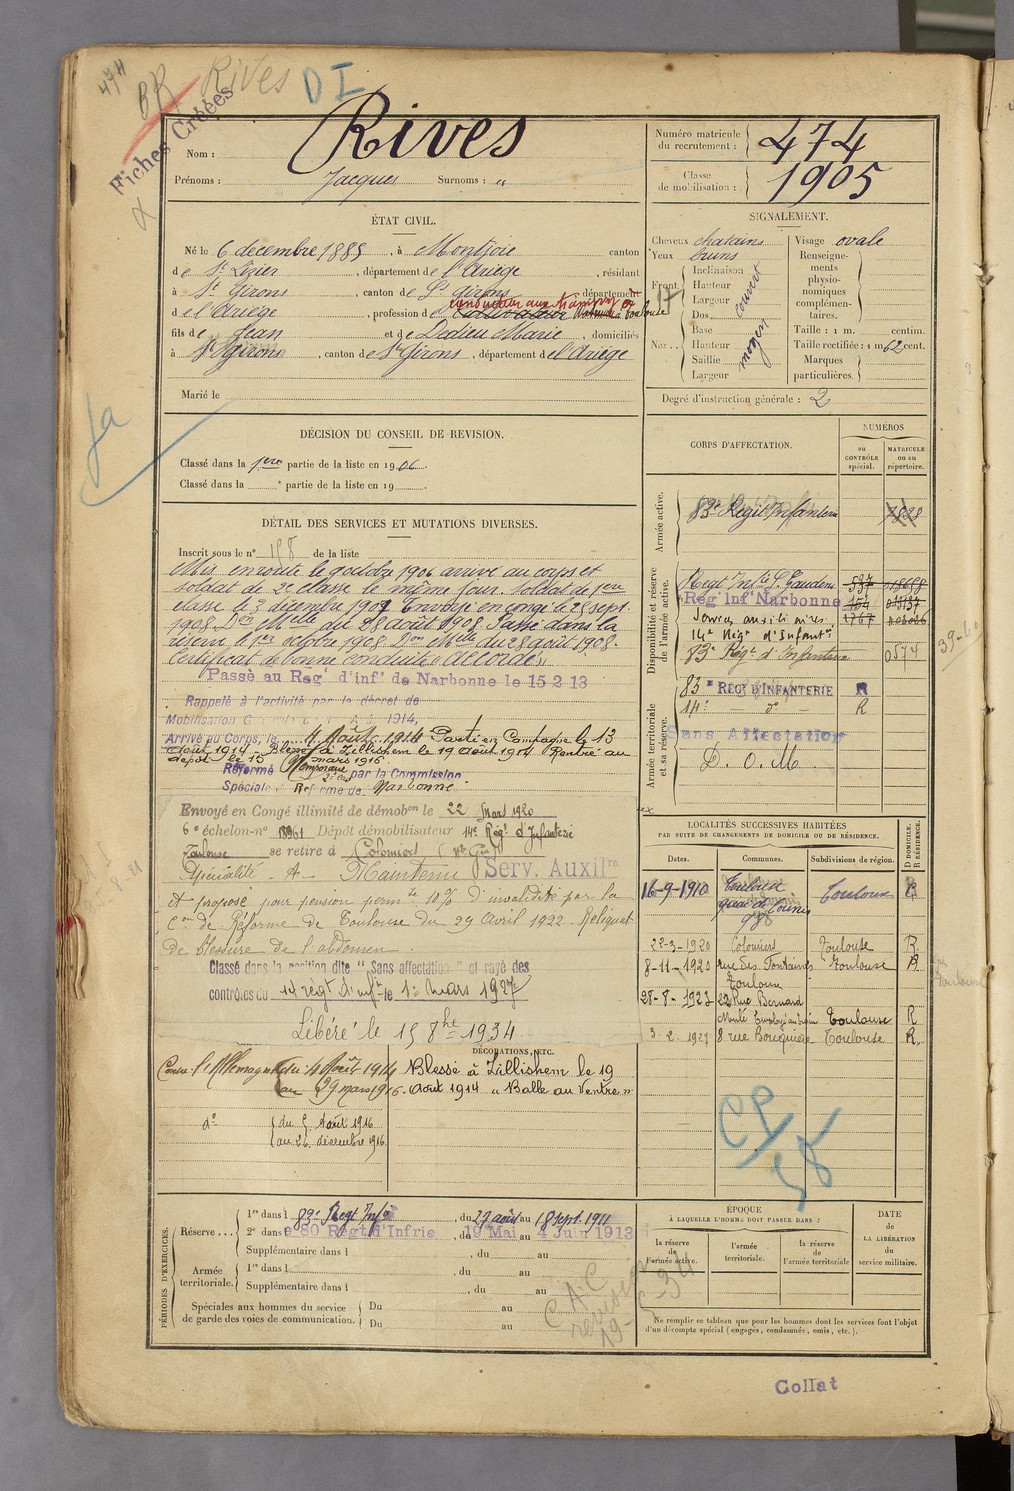 474
BR Rives D I
Fiches Créées
Nom : Rives
Prénoms : Jacques Surnoms : "
Numéro matricule
du recrutement : 474
Classe
de mobilisation : 1905
ÉTAT CIVIL.
Né le 6 décembre 1885, à Montjoie canton
de St Lizier, département de l'Ariège, résidant
à St Girons, canton de St Girons, département
conducteur aux tramways
de l'Ariège, profession de Cultivateur Toulouse
fils de Jean et de Dedieu Marie, domiciliés
à St Girons, canton de St Girons, département de l'Ariège
Marié le
SIGNALEMENT.
Cheveux chatains
Yeux bruns
Front
Inclinaison
Hauteur
Largeur
couvert
Nez
Dos
Base
Hauteur
Saillie
Largeur
moyen
Visage ovale
Renseigne-
ments
physio-
nomiques
complémen-
taires.
Taille : 1 m. centim.
Taille rectifiée : 1 m 62 cent.
Marques
particulières.
Degré d'instruction générale : 2
Ja
DÉCISION DU CONSEIL DE REVISION.
Classé dans la 1ere partie de la liste en 1906.
Classé dans la e partie de la liste en 19
DÉTAIL DES SERVICES ET MUTATIONS DIVERSES.
Inscrit sous le n° 158 de la liste
Mis en route le 9 octobre 1906 arrivé au corps et
soldat de 2e classe le même jour. Soldat de 1ere
classe le 3 décembre 1907 Envoyé en congé le 25 sept.
1908. Don Mlle du 28 août 1908. Passé dans la
réserve le 1er octobre 1908. Don Mlle du 28 août 1908.
Certificat de bonne conduite "Accordé"
Passé au Reg t d'inf ie de Narbonne le 15 2 13
Rappelé à l'activité par le décret de
Mobilisation 1914,
Arrivé au Corps, le 4 Août 1914 Parti en Campagne le 13
Août 1914 - Blessé à Zillishem le 19 Août 1914 Rentré au
dépôt le 15 mars 1916.
Réformé Temporaire 2e cat par la Commission
Spéciale de Réforme de Narbonne
Envoyé en Congé illimité de démobon le 22 Mars 1920
6e échelon-n° Dépôt démobilisateur 14e Régt d'Infanterie
Toulouse se retire à Colomiers (Hte Gne)
Spécialité A Maintenu Serv. Auxilre
et proposé pour pension permte 10% d'invalidité par la
Con de Réforme de Toulouse du 29 Avril 1922. Reliquat
de blessure de l'abdomen.
Classé dans la position dite "Sans affectation" et rayé des
contrôles du 14 régt d'infie le 1er mars 1927
Libéré le 15 8bre 1934
CORPS D'AFFECTATION.
NUMÉROS
au
CONTRÔLE
spécial.
MATRICULE
ou au
répertoire.
Armée active.
83e Regit Infanterie 7828
Disponibilité et réserve
de l'armée active.
Regt Infie St Gaudens 537
Reg t Inf ie Narbonne 154
Services auxiliaires 1767
14e Régt d'Infantie
83e Régt d'Infanterie 0574
39-40
Armée territoriale
et sa réserve.
83e RÉGt D'INFANTERIE R
14e do R
Sans Affectation
D. O. M.
LOCALITÉS SUCCESSIVES HABITÉES
PAR SUITE DE CHANGEMENTS DE DOMICILE OU DE RÉSIDENCE.
Dates. Communes. Subdivisions de région. D DOMICILE. R RÉSIDENCE.
16-9-1910 Toulouse Toulouse R
quai de Tounis
98
22-3-1920 Colomiers Toulouse R
8-11-1920 rue des Fontaines Toulouse R
Toulouse
28-8-1923 22 Rue Bernard
Mulé Toulouse R
3-2-1927 8 rue Bouquière Toulouse R.
DÉCORATIONS, ETC.
Contre l'Allemagne du 4 Août 1914
au 29 mars 1916.
do du 5 Août 1916
au 26 décembre 1916
Blessé à Zillishem le 19
Août 1914 "Balle au Ventre"
CP/58
PÉRIODES D'EXERCICES.
Réserve ...
1re dans l 83e Regt Infie, du 27 août au 18 sept. 1911
2e dans l e 80 Regt d'Infrie, du 19 Mai au 4 Juin 1913
Supplémentaire dans l , du au
Armée
territoriale.
1re dans l , du au
Supplémentaire dans l , du au
Spéciales aux hommes du service
de garde des voies de communication.
Du au
Du au
ÉPOQUE
À LAQUELLE L'HOMME DOIT PASSER DANS :
la réserve
de
l'armée active.
l'armée
territoriale.
la réserve
de
l'armée territoriale
DATE
de
LA LIBÉRATION
du
service militaire.
Ne remplir ce tableau que pour les hommes dont les services font l'objet
d'un décompte spécial (engagés, condamnés, omis, etc.).
Collat